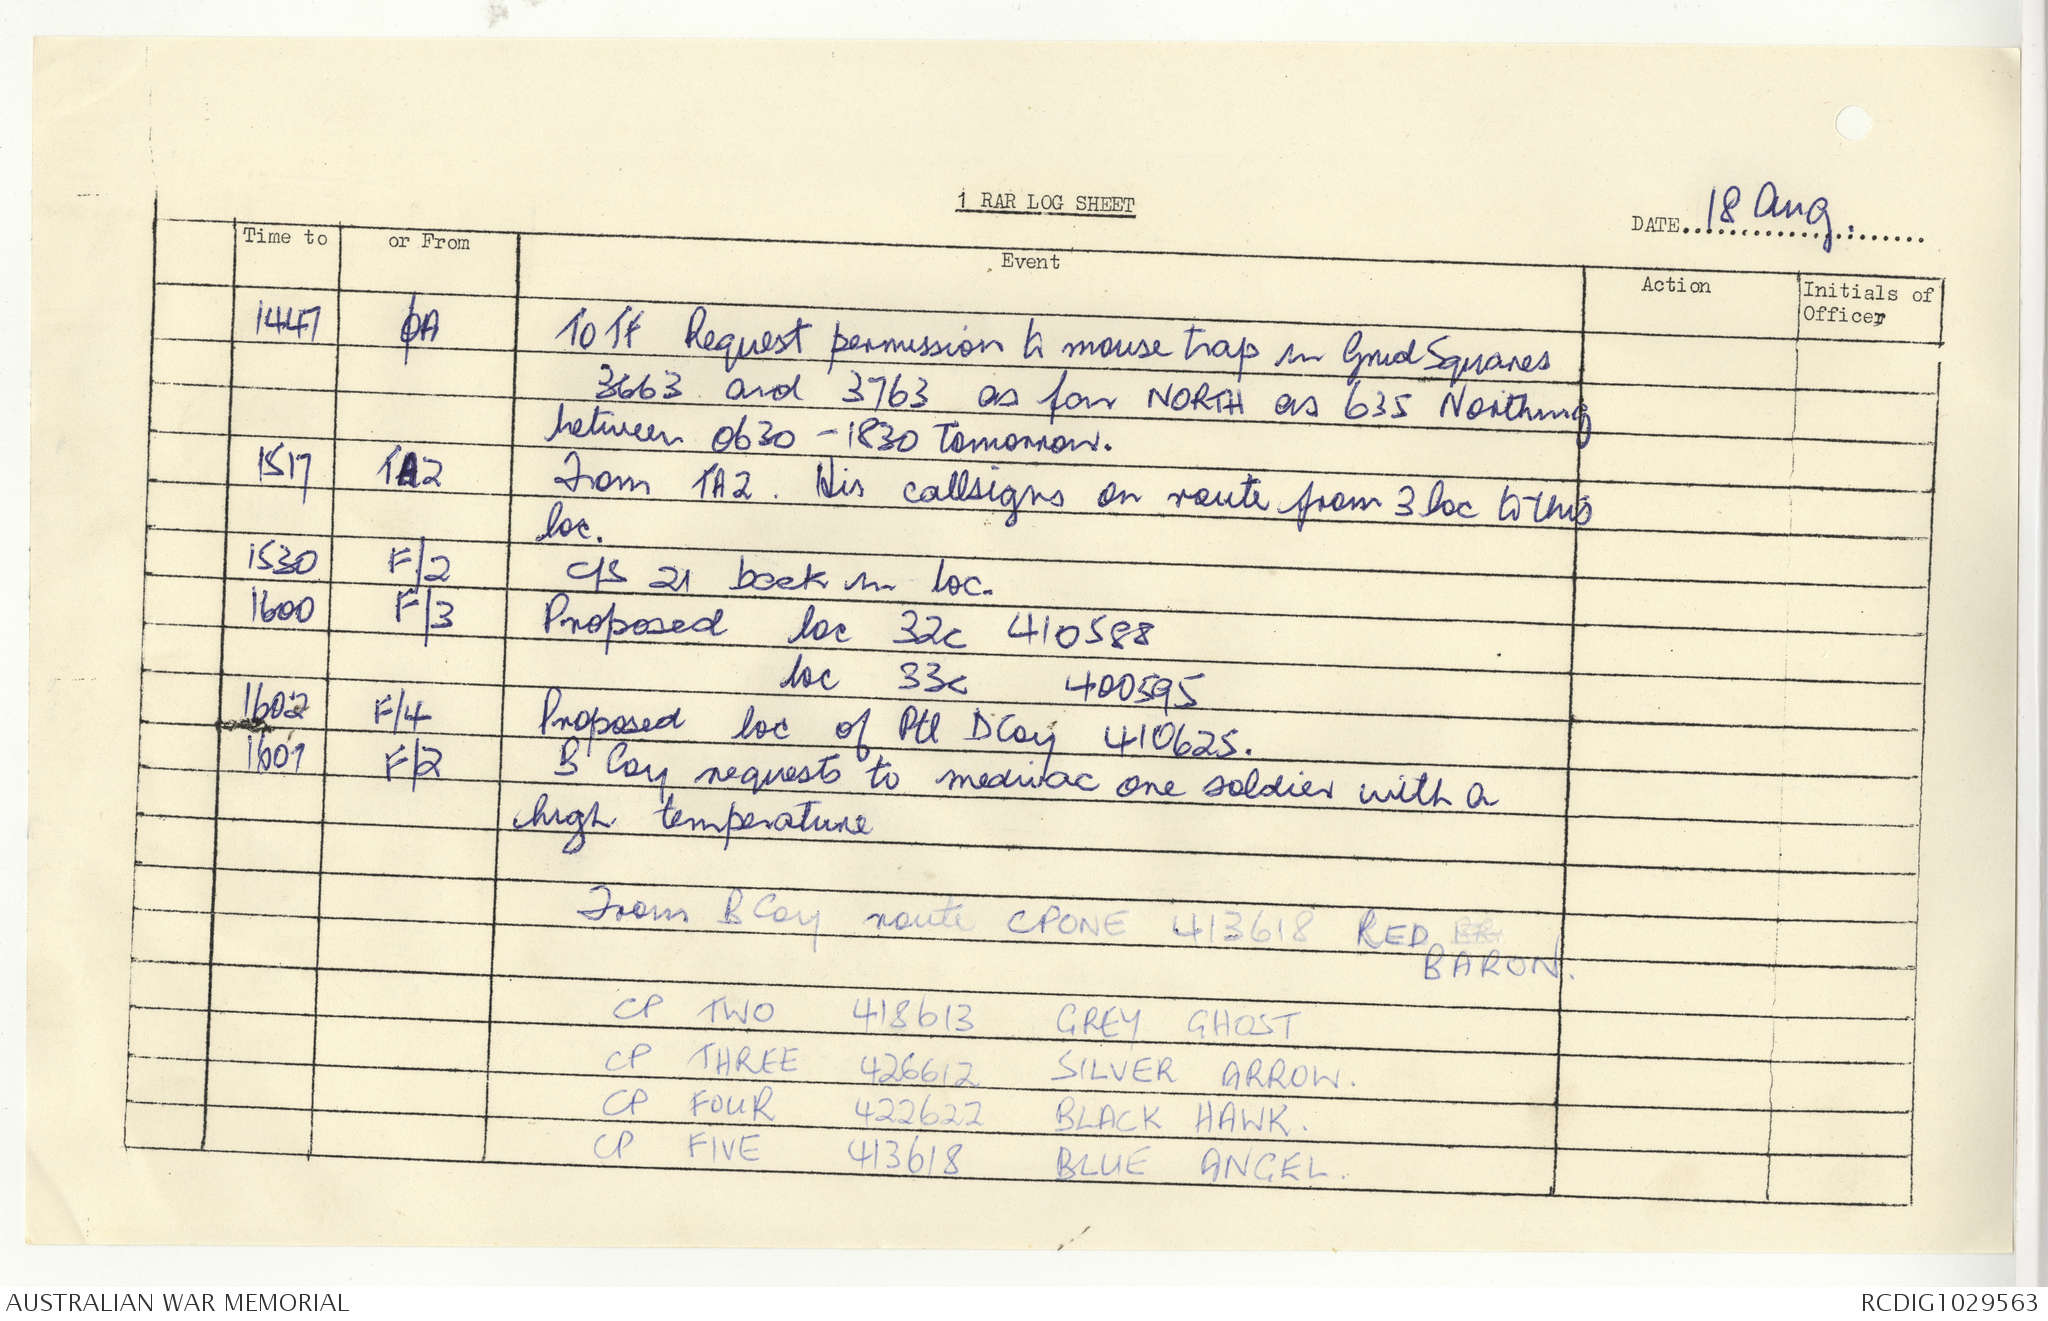 1 RAR LOG SHEET
DATE 18 Aug.
Time to or From Event Action Initials of Officer
1447 ØA To TF Request permission to mouse trap in Grid Squares
3663 and 3763 as far NORTH as 635 Northing
between 0630 - 1830 tomorrow.
1517 TA2 From TA2. His callsigns on route from 3 loc to this
loc.
1530 F/2 C/S 21 back in loc.
1600 F/3 Proposed loc 32c 410588
loc 33c 400595
1602 F/4 Proposed loc of Ptl D Coy 410625.
1607 F/2 B Coy requests to medivac one soldier with a
high temperature
From B Coy route CP ONE 413618 RED
BARON.
CP TWO 418613 GREY GHOST
CP THREE 426612 SILVER ARROW.
CP FOUR 422622 BLACK HAWK.
CP FIVE 413618 BLUE ANGEL.
AUSTRALIAN WAR MEMORIAL
RCDIG1029563